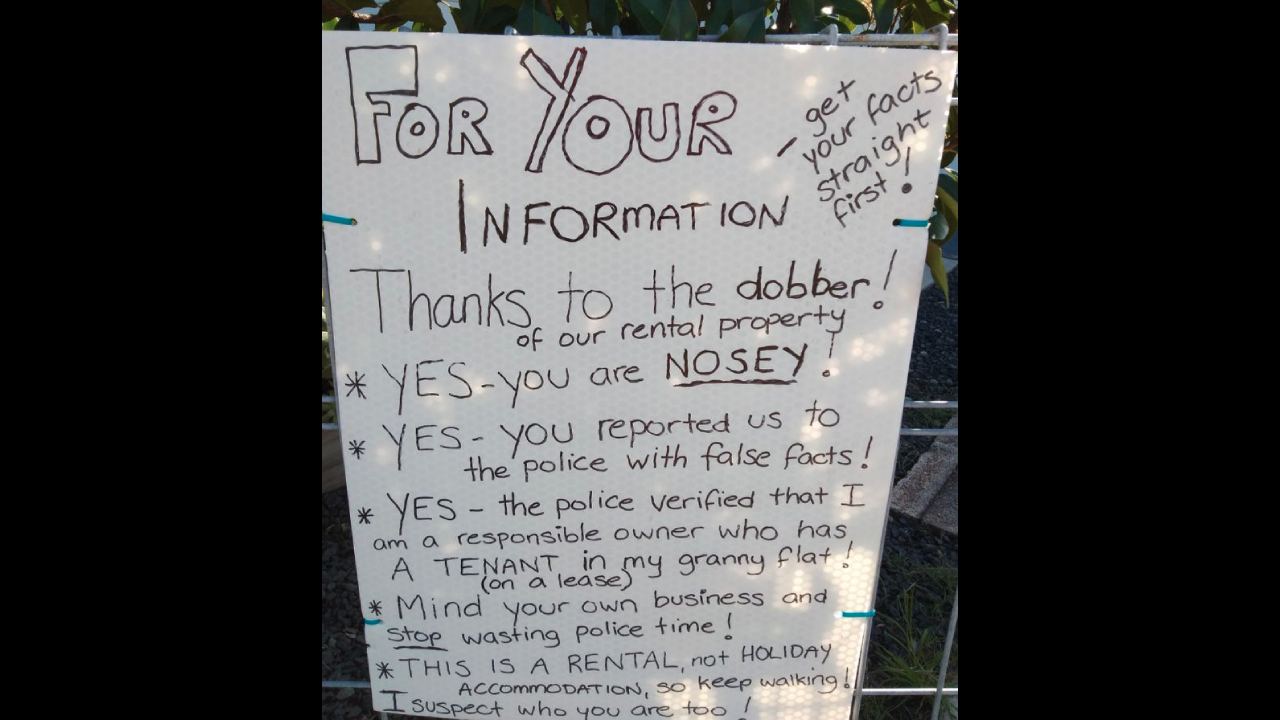 FOR YOUR
- get
your facts
straight
first!
INFORMATION
Thanks to the dobber!
of our rental property
* YES - you are NOSEY!
* YES - YOU reported us to
the police with false facts!
* YES - the police verified that I
am a responsible owner who has
A TENANT in my granny flat!
(on a lease)
* Mind your own business and
stop wasting police time!
* THIS IS A RENTAL, not HOLIDAY
ACCOMMODATION, so keep walking!
I suspect who you are too!